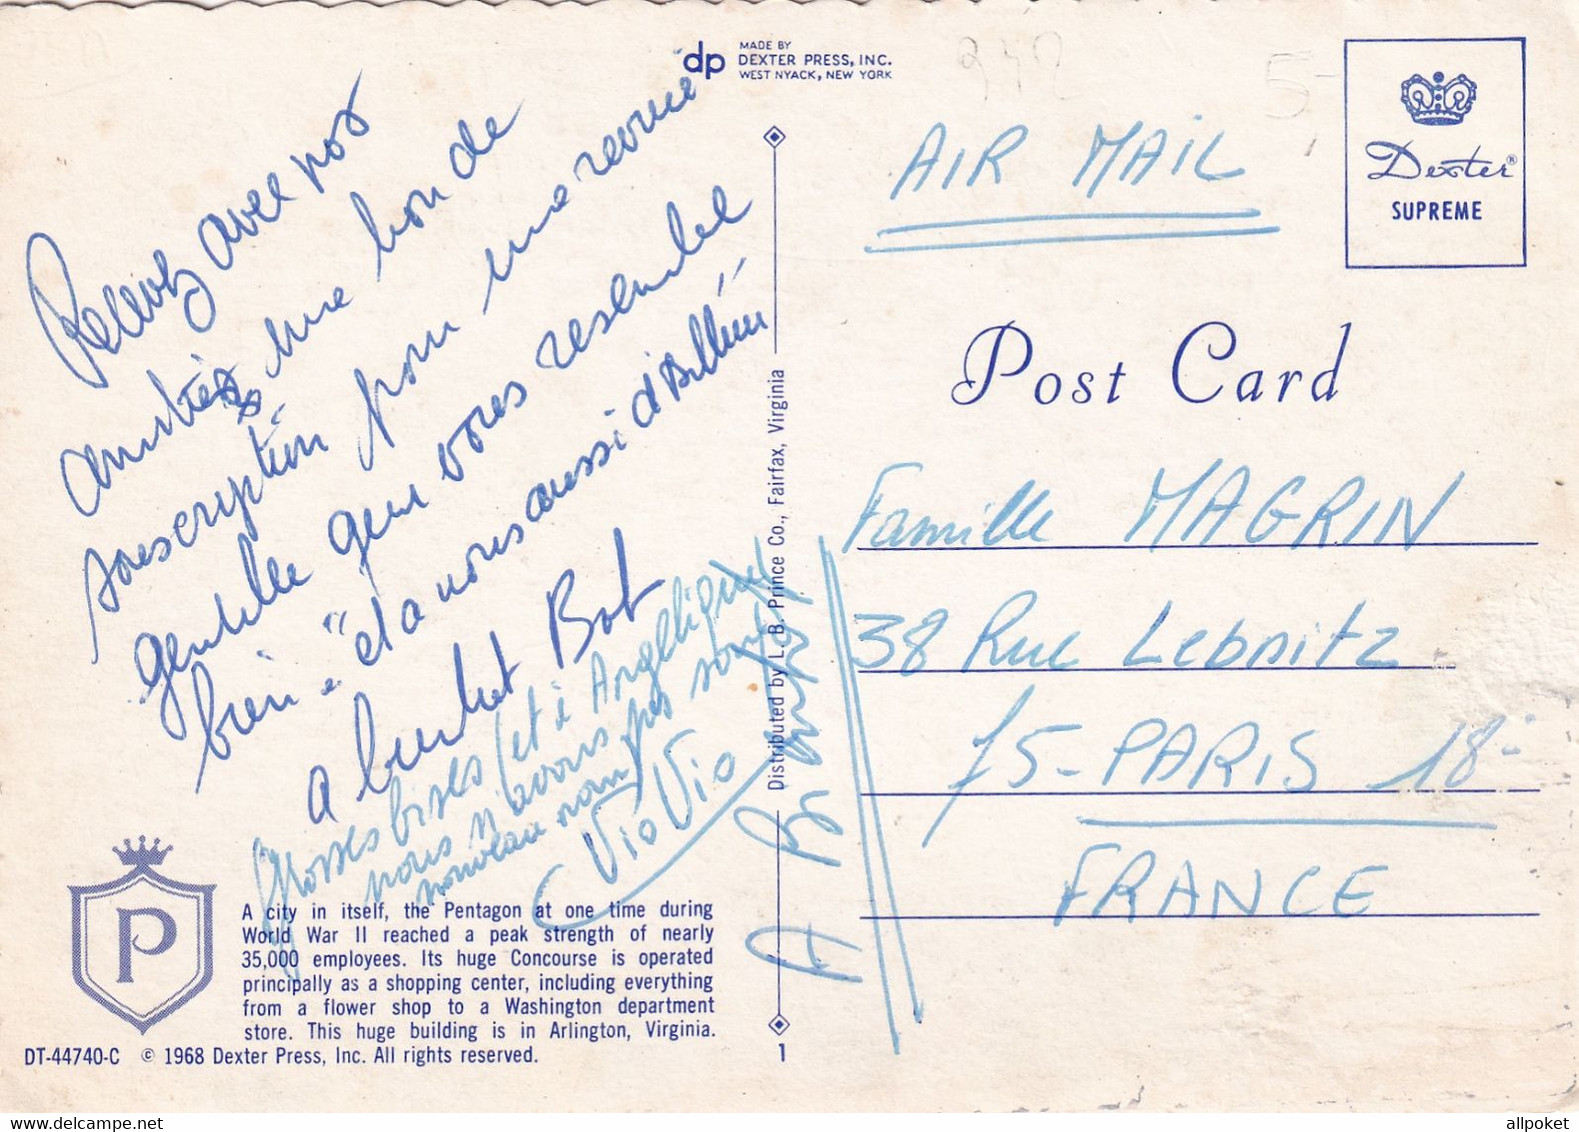 Recevez avec nos
amitiés une bon de
souscription pour une revue
gentille qui vous resemble
bien " et a nous aussi d'ailleurs "
a bientot Bob
Grosses bises (et à Angelique
nous n'avons pas son
nouveau nom)
Vio Vio
A
MADE BY
dp DEXTER PRESS, INC.
WEST NYACK, NEW YORK
AIR MAIL
5-
Dexter®
SUPREME
Post Card
Famille MAGRIN
38 Rue Lebnitz
75-PARIS 18-
FRANCE
Distributed by L. B. Prince Co., Fairfax, Virginia
P
A city in itself, the Pentagon at one time during
World War II reached a peak strength of nearly
35,000 employees. Its huge Concourse is operated
principally as a shopping center, including everything
from a flower shop to a Washington department
store. This huge building is in Arlington, Virginia.
DT-44740-C © 1968 Dexter Press, Inc. All rights reserved.
1
allpoket